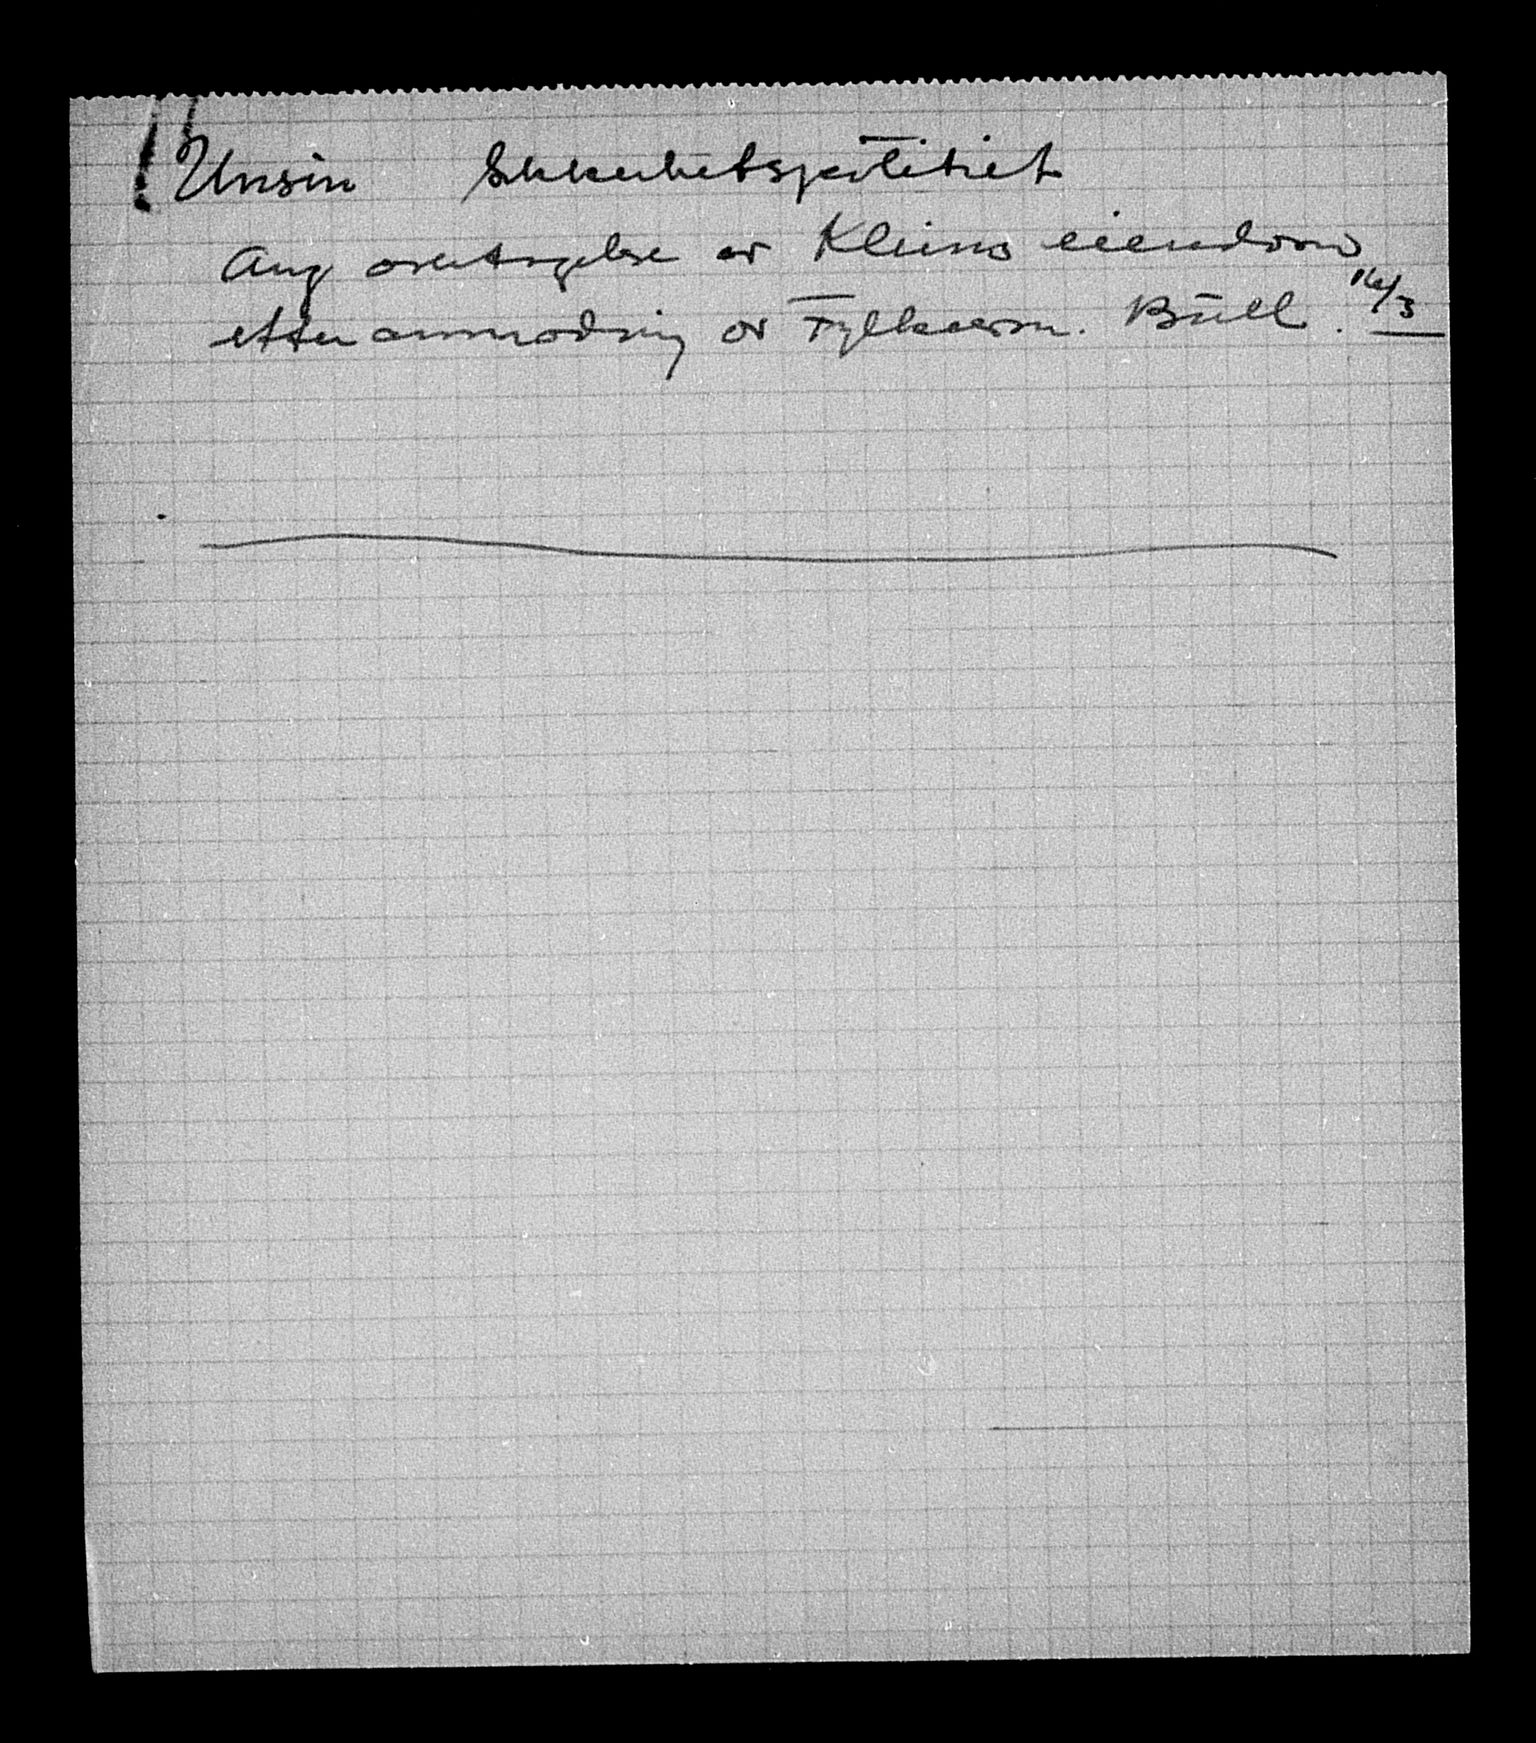 Unsin Sikkerhetspolitiet
Ang overtagelse av Kleins eiendom
etter anmodning av Fylkesm. Büll. 16/3